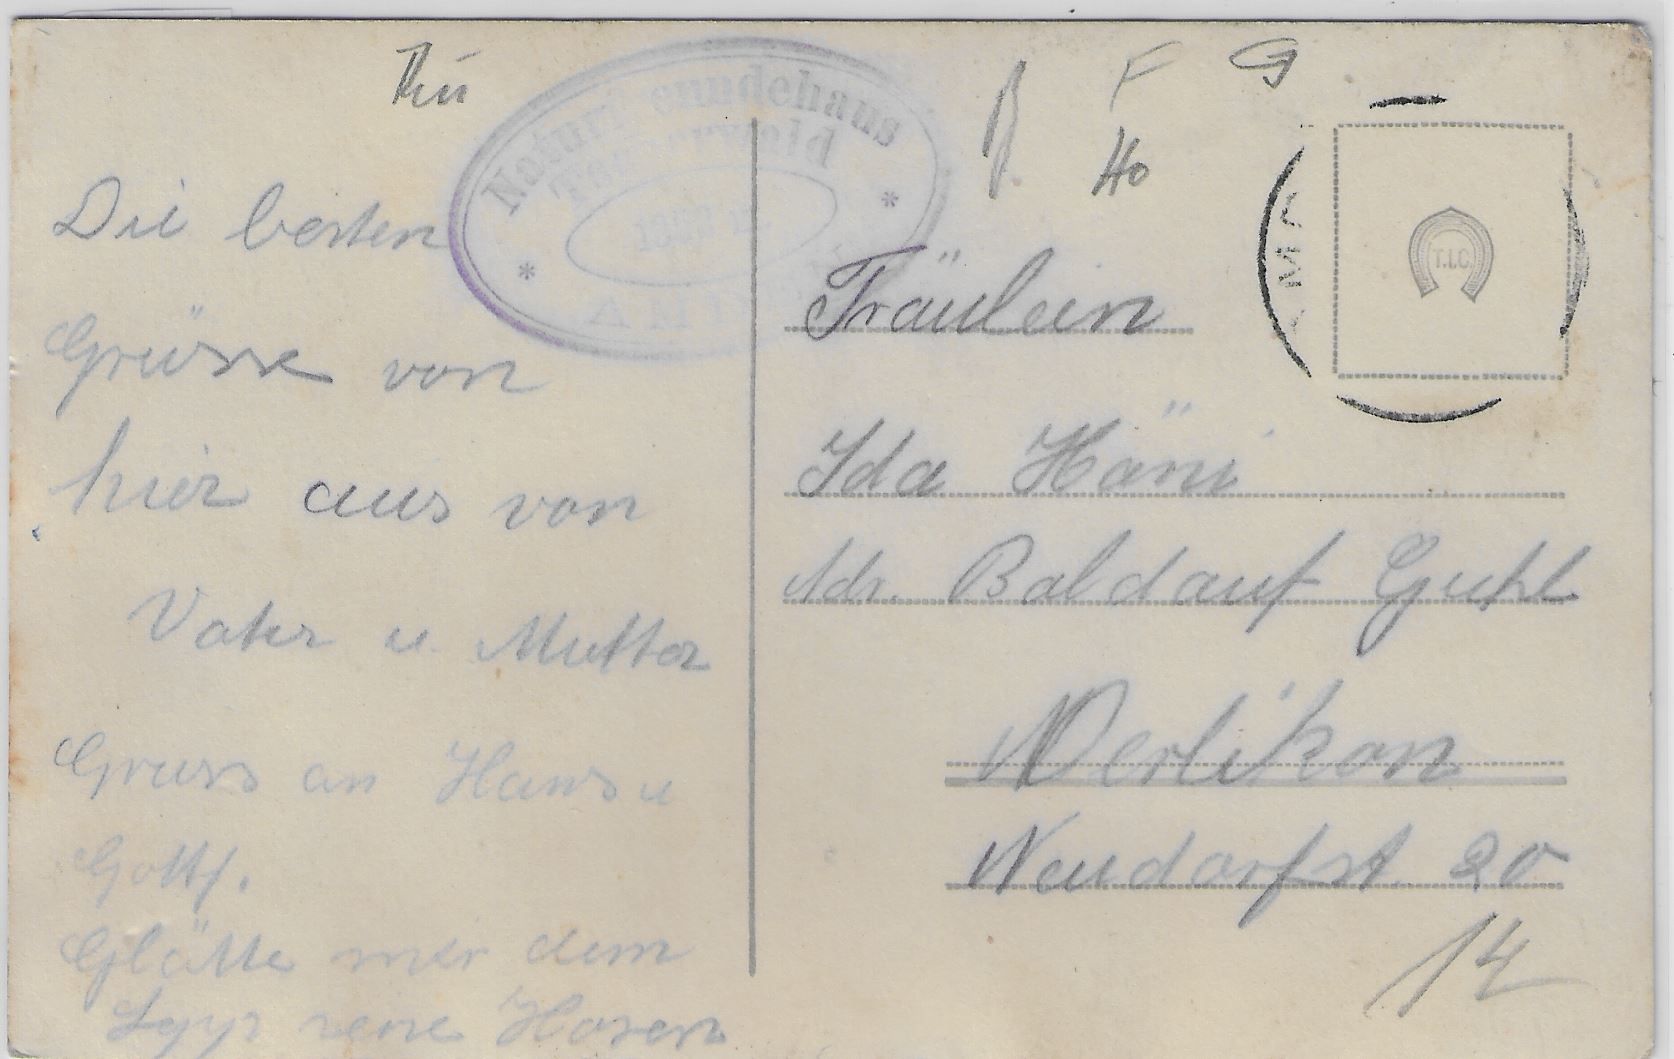 B F G
Ho
Naturfreundehaus
AMD
T.I.C.
Die besten
Grüsse von
hier aus von
Vater u. Mutter
Gruss an Hans u
Gottf.
Glätte mir dem
seine Hosen
Fräulein
Ida Häni
Adr. Baldauf Guhl
Oerlikon
Neudorfst. 20
14